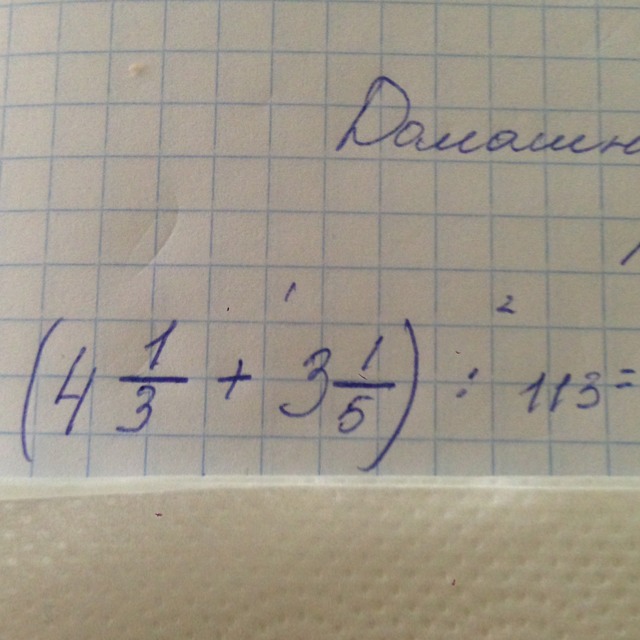 Домашн
1 2
(4 1/3 + 3 1/5) : 113 =